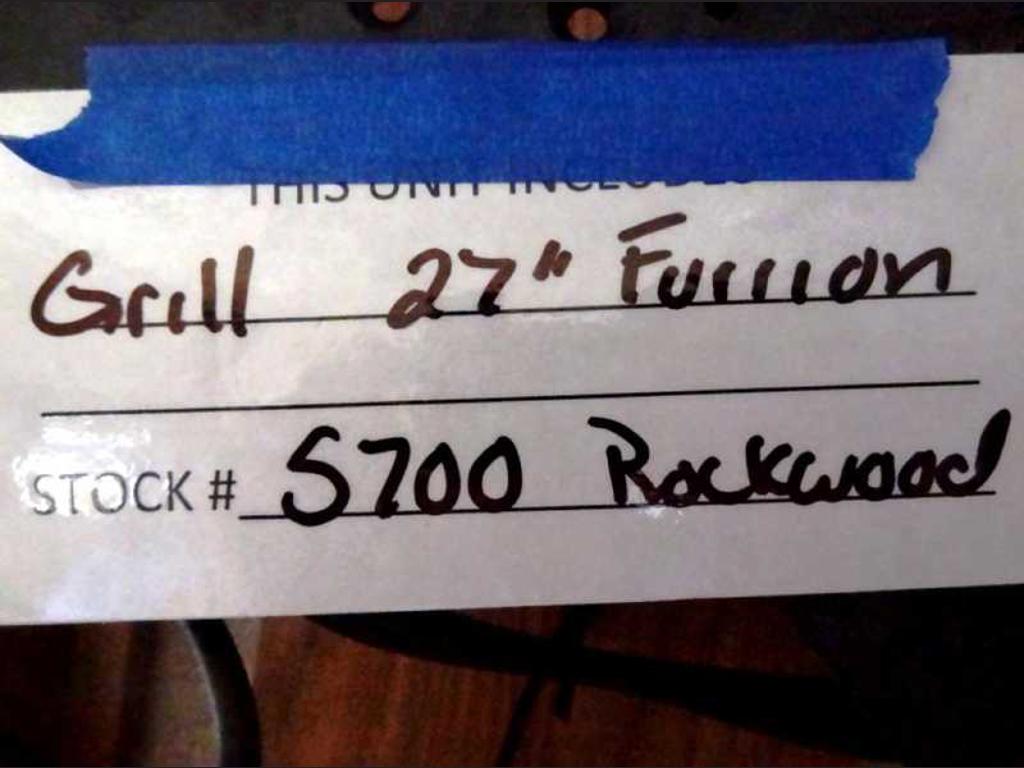 THIS UNIT INCLUDES
Grill 27" Furrion
STOCK # S700 Rockwood